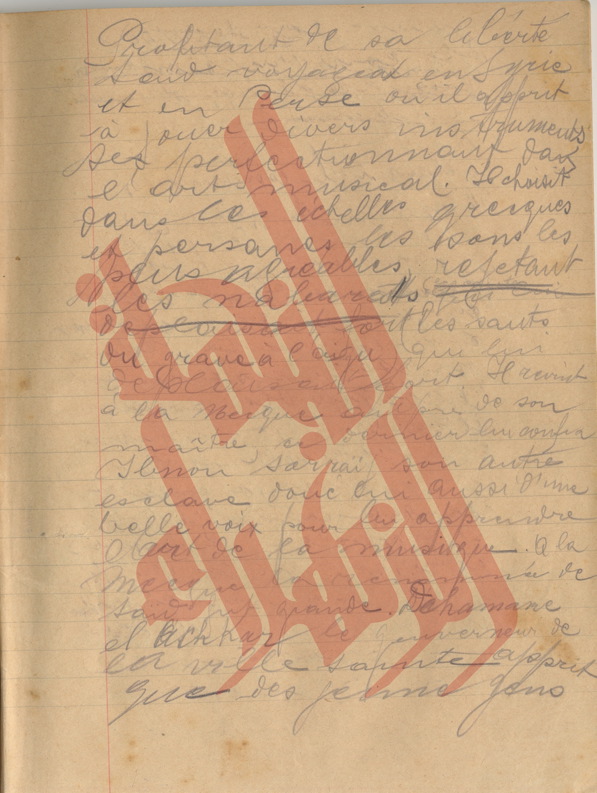 Profitant de sa liberté
Saïd voyagea en Syrie
et en Perse où il apprit
à jouer divers instruments
se perfectionnant dans
l'art musical. Il choisit
dans les échelles grecques
et persanes les sons les
plus agréables, rejetant
les naburats
les sauts
du grave à l'aigu qui lui
Il revint
à la Mecque auprès de son
maître, ce dernier lui confia
Ibnou Sarraï son autre
esclave doué lui aussi d'une
belle voix pour lui apprendre
l'art de la musique. A la
Mecque la renommée de
Saïd fut grande. Dehamane
el Achkar le gouverneur de
la ville sainte apprit
que des jeune gens